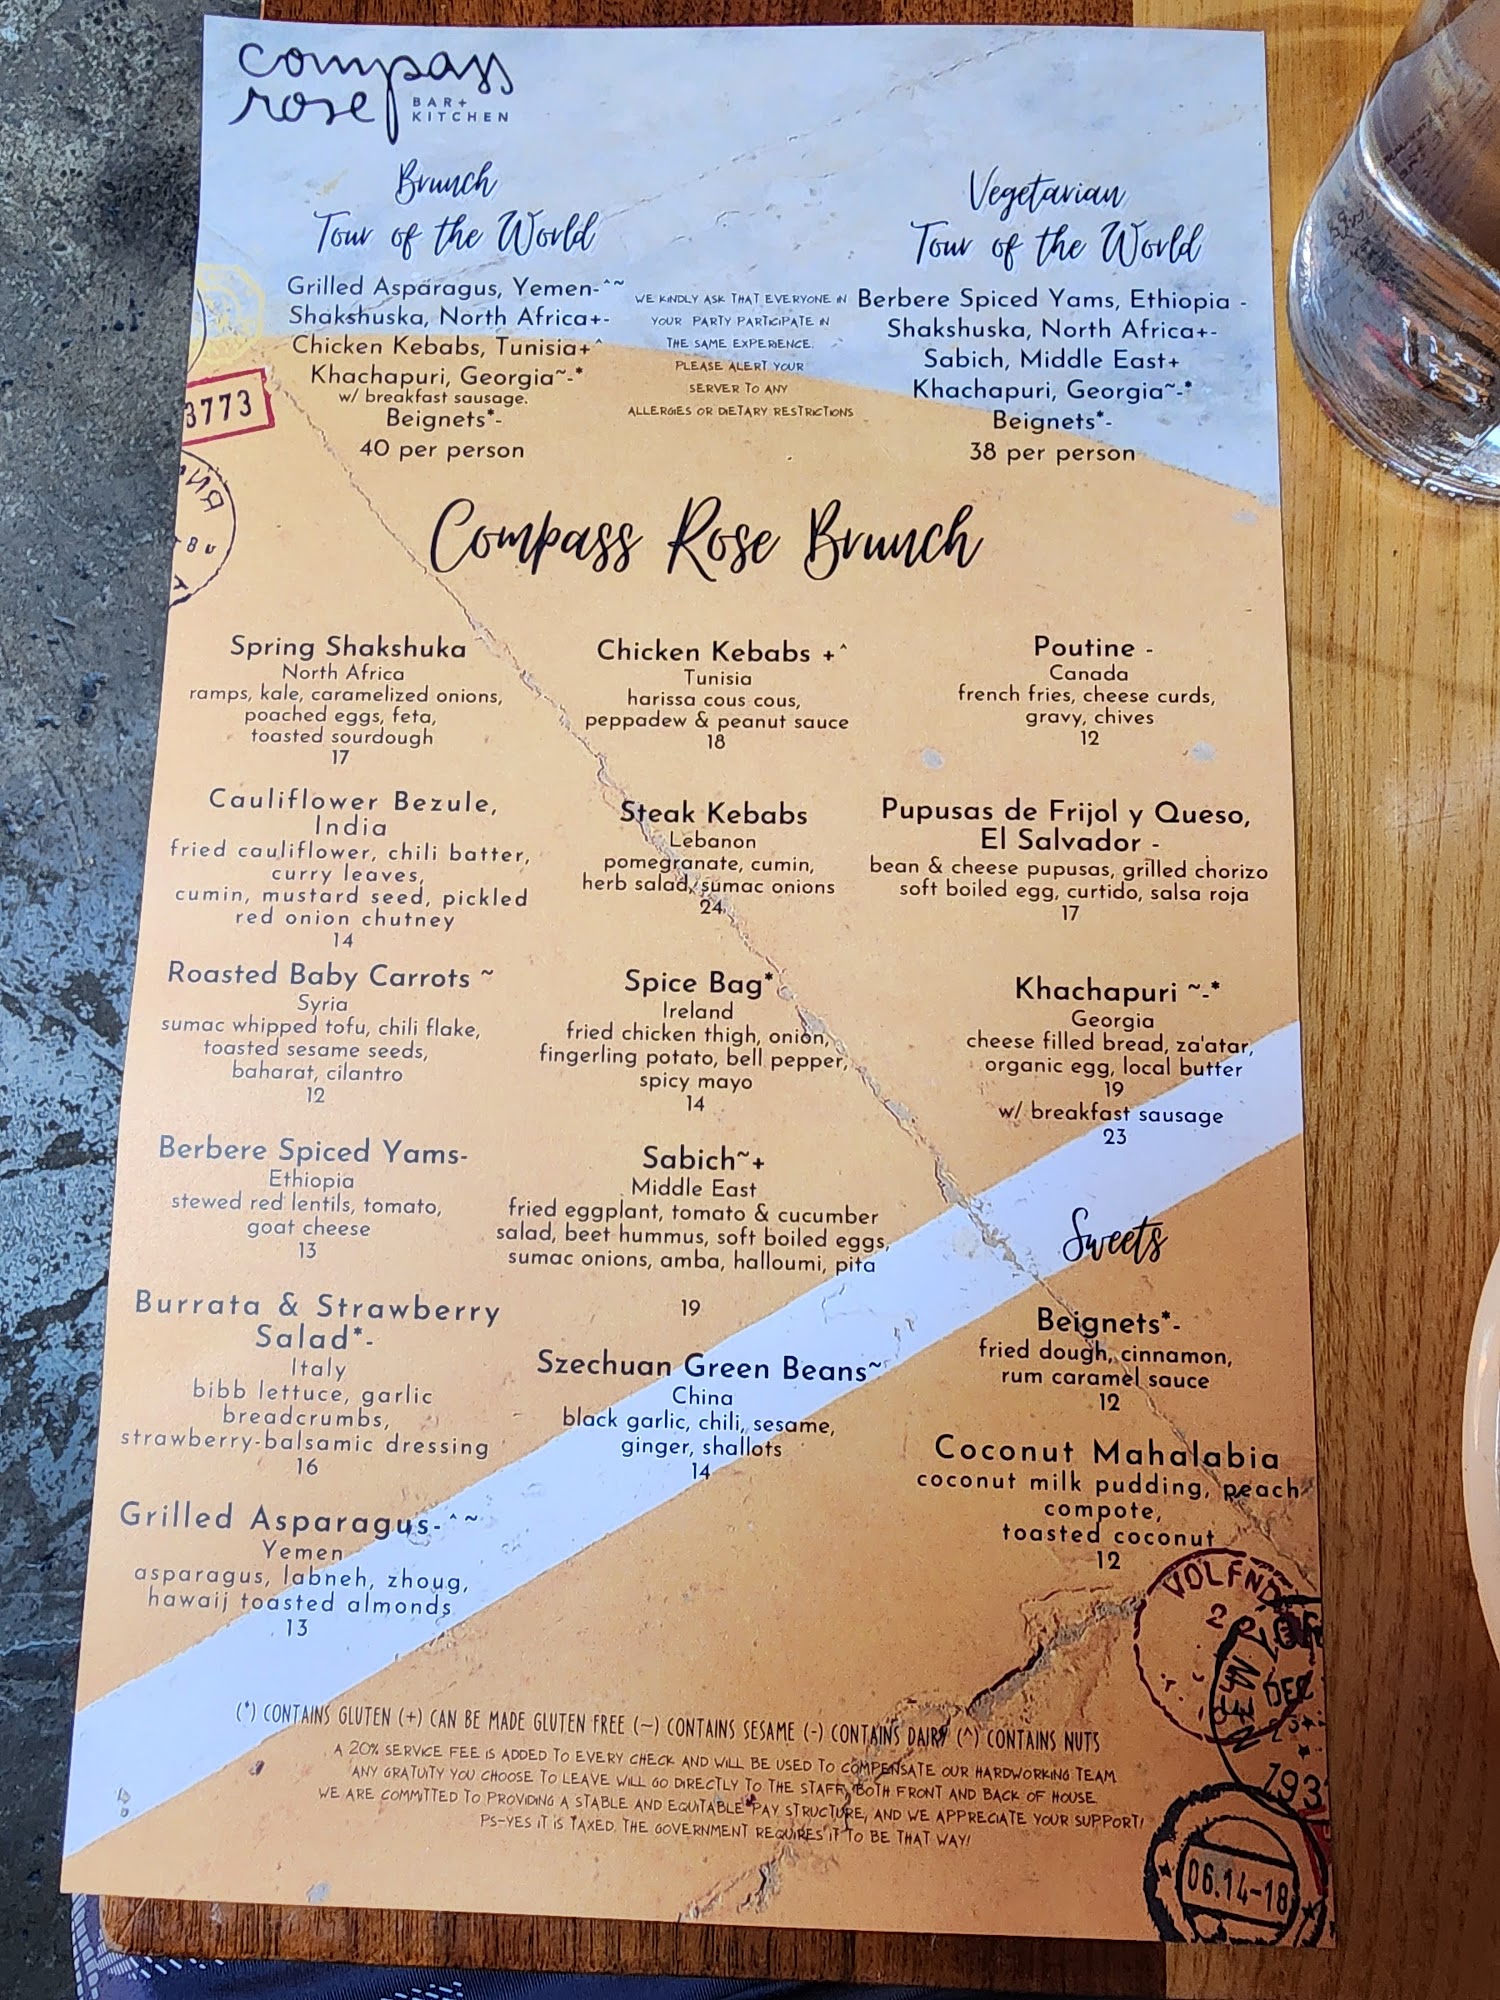 compass
rose BAR+
KITCHEN
Brunch
Tour of the World
Grilled Asparagus, Yemen-^~
Shakshuska, North Africa+-
Chicken Kebabs, Tunisia+^
Khachapuri, Georgia~-*
w/ breakfast sausage.
Beignets*-
40 per person
WE KINDLY ASK THAT EVERYONE IN
YOUR PARTY PARTICIPATE IN
THE SAME EXPERIENCE.
PLEASE ALERT YOUR
SERVER TO ANY
ALLERGIES OR DIETARY RESTRICTIONS
Vegetarian
Tour of the World
Berbere Spiced Yams, Ethiopia -
Shakshuska, North Africa+-
Sabich, Middle East+
Khachapuri, Georgia~-*
Beignets*-
38 per person
3773
Compass Rose Brunch
Spring Shakshuka
North Africa
ramps, kale, caramelized onions,
poached eggs, feta,
toasted sourdough
17
Cauliflower Bezule,
India
fried cauliflower, chili batter,
curry leaves,
cumin, mustard seed, pickled
red onion chutney
14
Roasted Baby Carrots ~
Syria
sumac whipped tofu, chili flake,
toasted sesame seeds,
baharat, cilantro
12
Berbere Spiced Yams-
Ethiopia
stewed red lentils, tomato,
goat cheese
13
Burrata & Strawberry
Salad*-
Italy
bibb lettuce, garlic
breadcrumbs,
strawberry-balsamic dressing
16
Grilled Asparagus-^~
Yemen
asparagus, labneh, zhoug,
hawaij toasted almonds
13
Chicken Kebabs +^
Tunisia
harissa cous cous,
peppadew & peanut sauce
18
Steak Kebabs
Lebanon
pomegranate, cumin,
herb salad, sumac onions
24
Spice Bag*
Ireland
fried chicken thigh, onion,
fingerling potato, bell pepper,
spicy mayo
14
Sabich~+
Middle East
fried eggplant, tomato & cucumber
salad, beet hummus, soft boiled eggs,
sumac onions, amba, halloumi, pita
19
Szechuan Green Beans~
China
black garlic, chili, sesame,
ginger, shallots
14
Poutine -
Canada
french fries, cheese curds,
gravy, chives
12
Pupusas de Frijol y Queso,
El Salvador -
bean & cheese pupusas, grilled chorizo
soft boiled egg, curtido, salsa roja
17
Khachapuri ~-*
Georgia
cheese filled bread, za'atar,
organic egg, local butter
19
w/ breakfast sausage
23
Sweets
Beignets*-
fried dough, cinnamon,
rum caramel sauce
12
Coconut Mahalabia
coconut milk pudding, peach
compote,
toasted coconut
12
(*) CONTAINS GLUTEN (+) CAN BE MADE GLUTEN FREE (~) CONTAINS SESAME (-) CONTAINS DAIRY (^) CONTAINS NUTS
A 20% SERVICE FEE IS ADDED TO EVERY CHECK AND WILL BE USED TO COMPENSATE OUR HARDWORKING TEAM.
ANY GRATUITY YOU CHOOSE TO LEAVE WILL GO DIRECTLY TO THE STAFF, BOTH FRONT AND BACK OF HOUSE.
WE ARE COMMITTED TO PROVIDING A STABLE AND EQUITABLE PAY STRUCTURE, AND WE APPRECIATE YOUR SUPPORT!
PS-YES IT IS TAXED, THE GOVERNMENT REQUIRES IT TO BE THAT WAY!
VOLFND
DEC
193
06.14-18